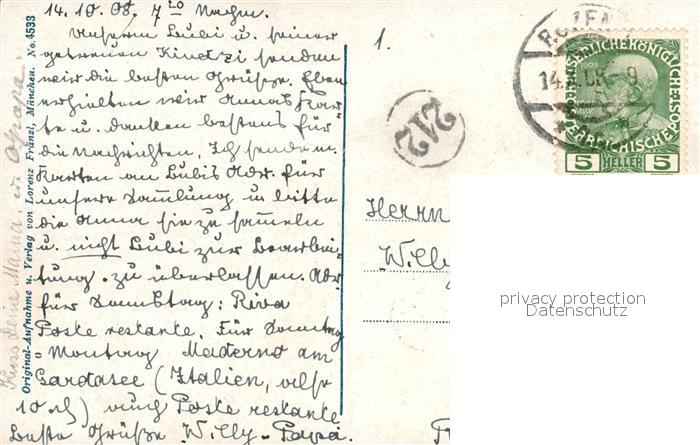 14.10.08. 7²⁰ Nachm.
Unserm Lubi u. seiner
getreuen Kindzi senden
wir die besten Grüße. Eben
erhielten wir Annas Kar-
te u. danken bestens für
die Nachrichten. Ich sende m.
Karten an Lubis Adr. für
unsere Sammlung u. bitte
die Anna sie zu sam̄eln
u. nicht Lubi zur Bearbei-
tung zu überlassen. Adr.
für Samstag: Riva
Poste restante. Für Sonntag
- Montag Maderno am
Gardasee (Italien, also
10 ch) auch Poste restante
Beste Grüße Willy-Papa.
Kuss Deine Mama. Opapa.
Original-Aufnahme u. Verlag von Lorenz Fränzl, München. No. 4533
1.
212
14. 08 9
1908
KAISERLICHE KÖNIGLICHE
ÖSTERREICHISCHE POST
5 HELLER 5
Herrn
Willy
privacy protection
Datenschutz